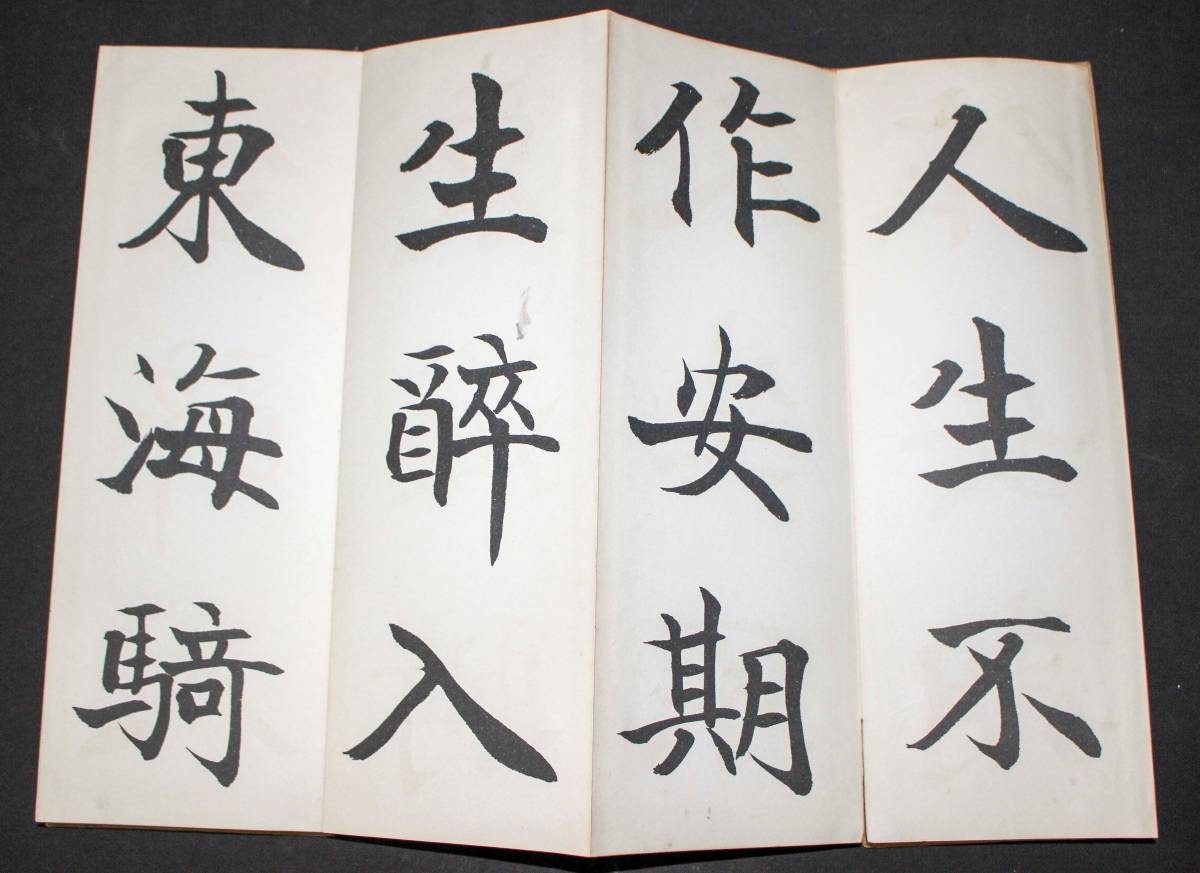 人生不
作安期
生醉入
東海騎